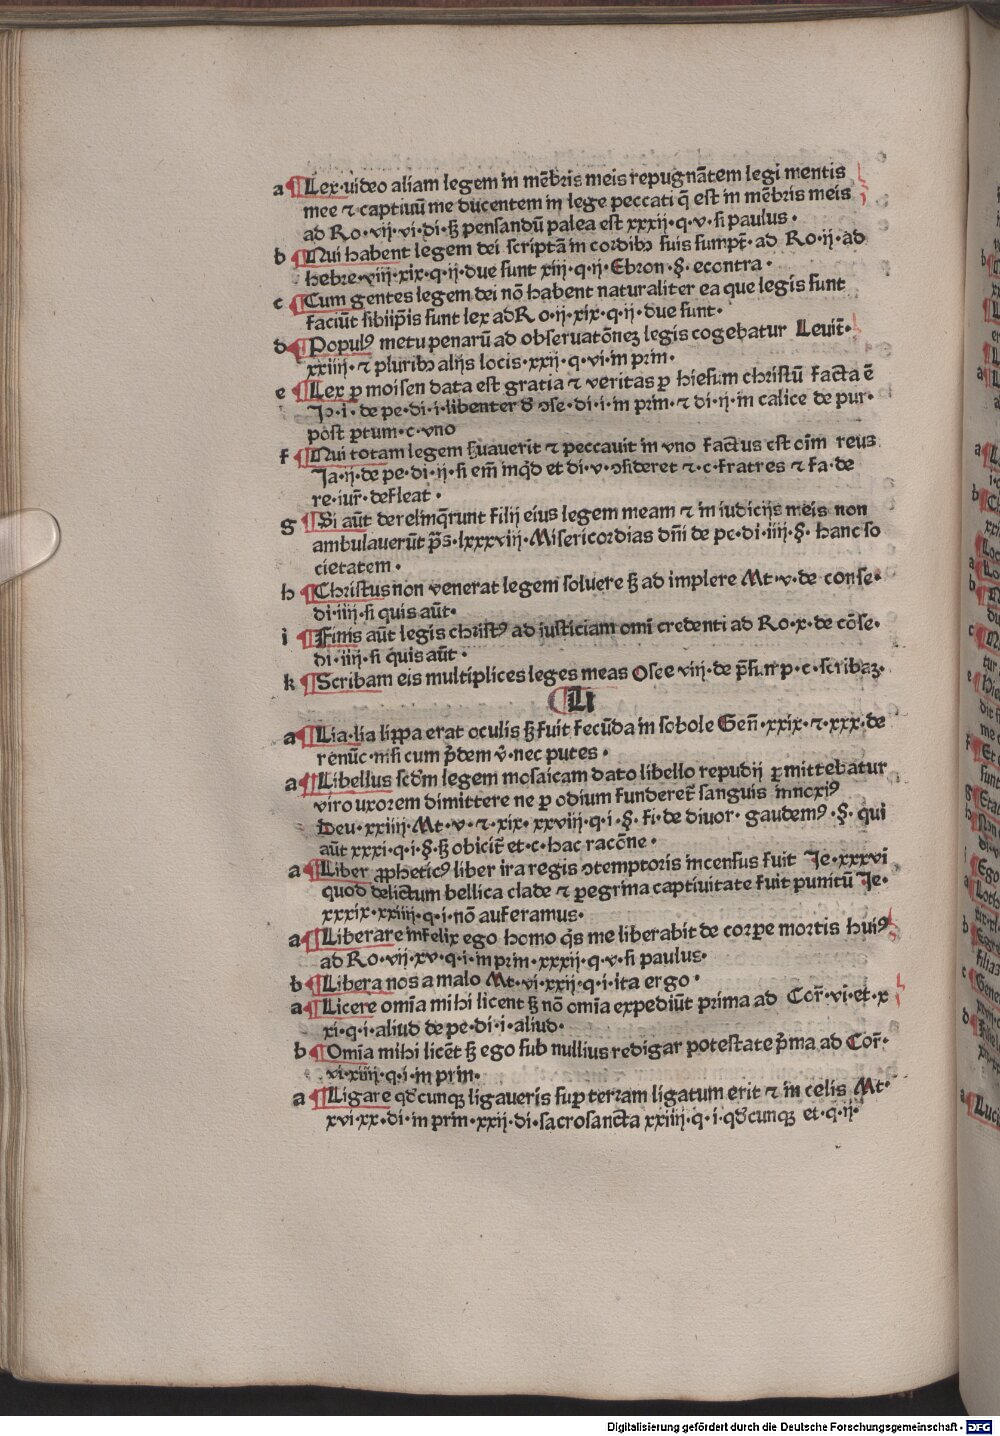 a ¶Lex·uideo aliam legem in mēbris meis repugnātem legi mentis
mee ⁊ captiuū me ducentem in lege peccati q̄ est in mēbris meis
ad Ro·vij·vi·di·ꝫ pensandū palea est xxxij·q·v·si paulus·
b ¶Qui habent legem dei scriptā in cordibꝫ suis sumpt̄· ad Ro·ij·ad
hebre·viij·xix·q·ij·due sunt xiij·q·ij·Ebron·§·econtra·
c ¶Cum gentes legem dei nō habent naturaliter ea que legis sunt
faciūt sibiip̄is sunt lex ad Ro·ij·xix·q·ij·due sunt·
d ¶Populꝰ metu penarū ad obseruatōnez legis cogebatur Leuit̄·
xxiiij·⁊ pluribꝫ alijs locis·xxij·q·vi·in prin·
e ¶Lex ꝑ moisen data est gratia ⁊ veritas ꝑ hiesum christū facta ē
Jo·i·de pe·di·i·libenter ꝺ ɔse·di·i·in prin·⁊ di·ij·in calice de pur·
post ꝑtum·c·vno
f ¶Qui totam legem ẜuauerit ⁊ peccauit in vno factus est oīm reus
Ja·ij·de pe·di·ij·si em̄ inq̄d et di·v·ɔsideret ⁊·c·fratres ⁊ fa·de
re·iur̄·defleat·
g ¶Si aūt derelinq̄runt filij eius legem meam ⁊ in iudicijs meis non
ambulauerūt p̄s·lxxxviij·Misericordias dn̄i de pe·di·iiij·§·hanc so
cietatem·
h ¶Christus non venerat legem soluere ꝫ ad implere Mt·v·de conse·
di·iiij·si quis aūt·
i ¶Finis aūt legis christꝰ ad iusticiam omī credenti ad Ro·x·de cōse·
di·iiij·si quis aūt·
k ¶Scribam eis multiplices leges meas Osee viij·de p̄sūmp·c·scribaꝫ·
¶Li
a ¶Lia·lia lippa erat oculis ꝫ fuit fecūda in sobole Gen̄·xxix·⁊·xxx·de
renūc·nisi cum p̄dem v̄·nec putes·
a ¶Libellus scdm̄ legem mosaicam dato libello repudij ꝑmittebatur
viro uxorem dimittere ne ꝑ odium funderet̄ sanguis innoxiꝰ
Deu·xxiiij·Mt·v·⁊·xix·xxviij·q·i·§·fi·de diuor·gaudemꝰ·§·qui
aūt xxxi·q·i·§·ꝫ obicit̄ et·c·hac racōne·
a ¶Liber ꝓpheticꝰ liber ira regis ɔtemptoris incensus fuit Je·xxxvi
quod delictum bellica clade ⁊ ꝑegrina captiuitate fuit punitū Je·
xxxix·xxiiij·q·i·nō auferamus·
a ¶Liberare infelix ego homo q̄s me liberabit de corꝑe mortis huiꝰ
ad Ro·vij·xv·q·i·in prin·xxxij·q·v·si paulus·
b ¶Libera nos a malo Mt·vi·xxij·q·i·ita ergo·
a ¶Licere omīa mihi licent ꝫ nō omīa expediūt prima ad Cor̄·vi·et·x
xi·q·i·aliud de pe·di·i·aliud·
b ¶Omīa mihi licēt ꝫ ego sub nullius redigar potestate p̄ma ad Cor̄·
vi·xiiij·q·i·in prin·
a ¶Ligare qd̄cunqꝫ ligaueris suꝑ terram ligatum erit ⁊ in celis Mt·
xvi·xx·di·in prin·xxij·di·sacrosancta xxiiij·q·i·qd̄cunqꝫ et·q·ij·
Digitalisierung gefördert durch die Deutsche Forschungsgemeinschaft - DFG